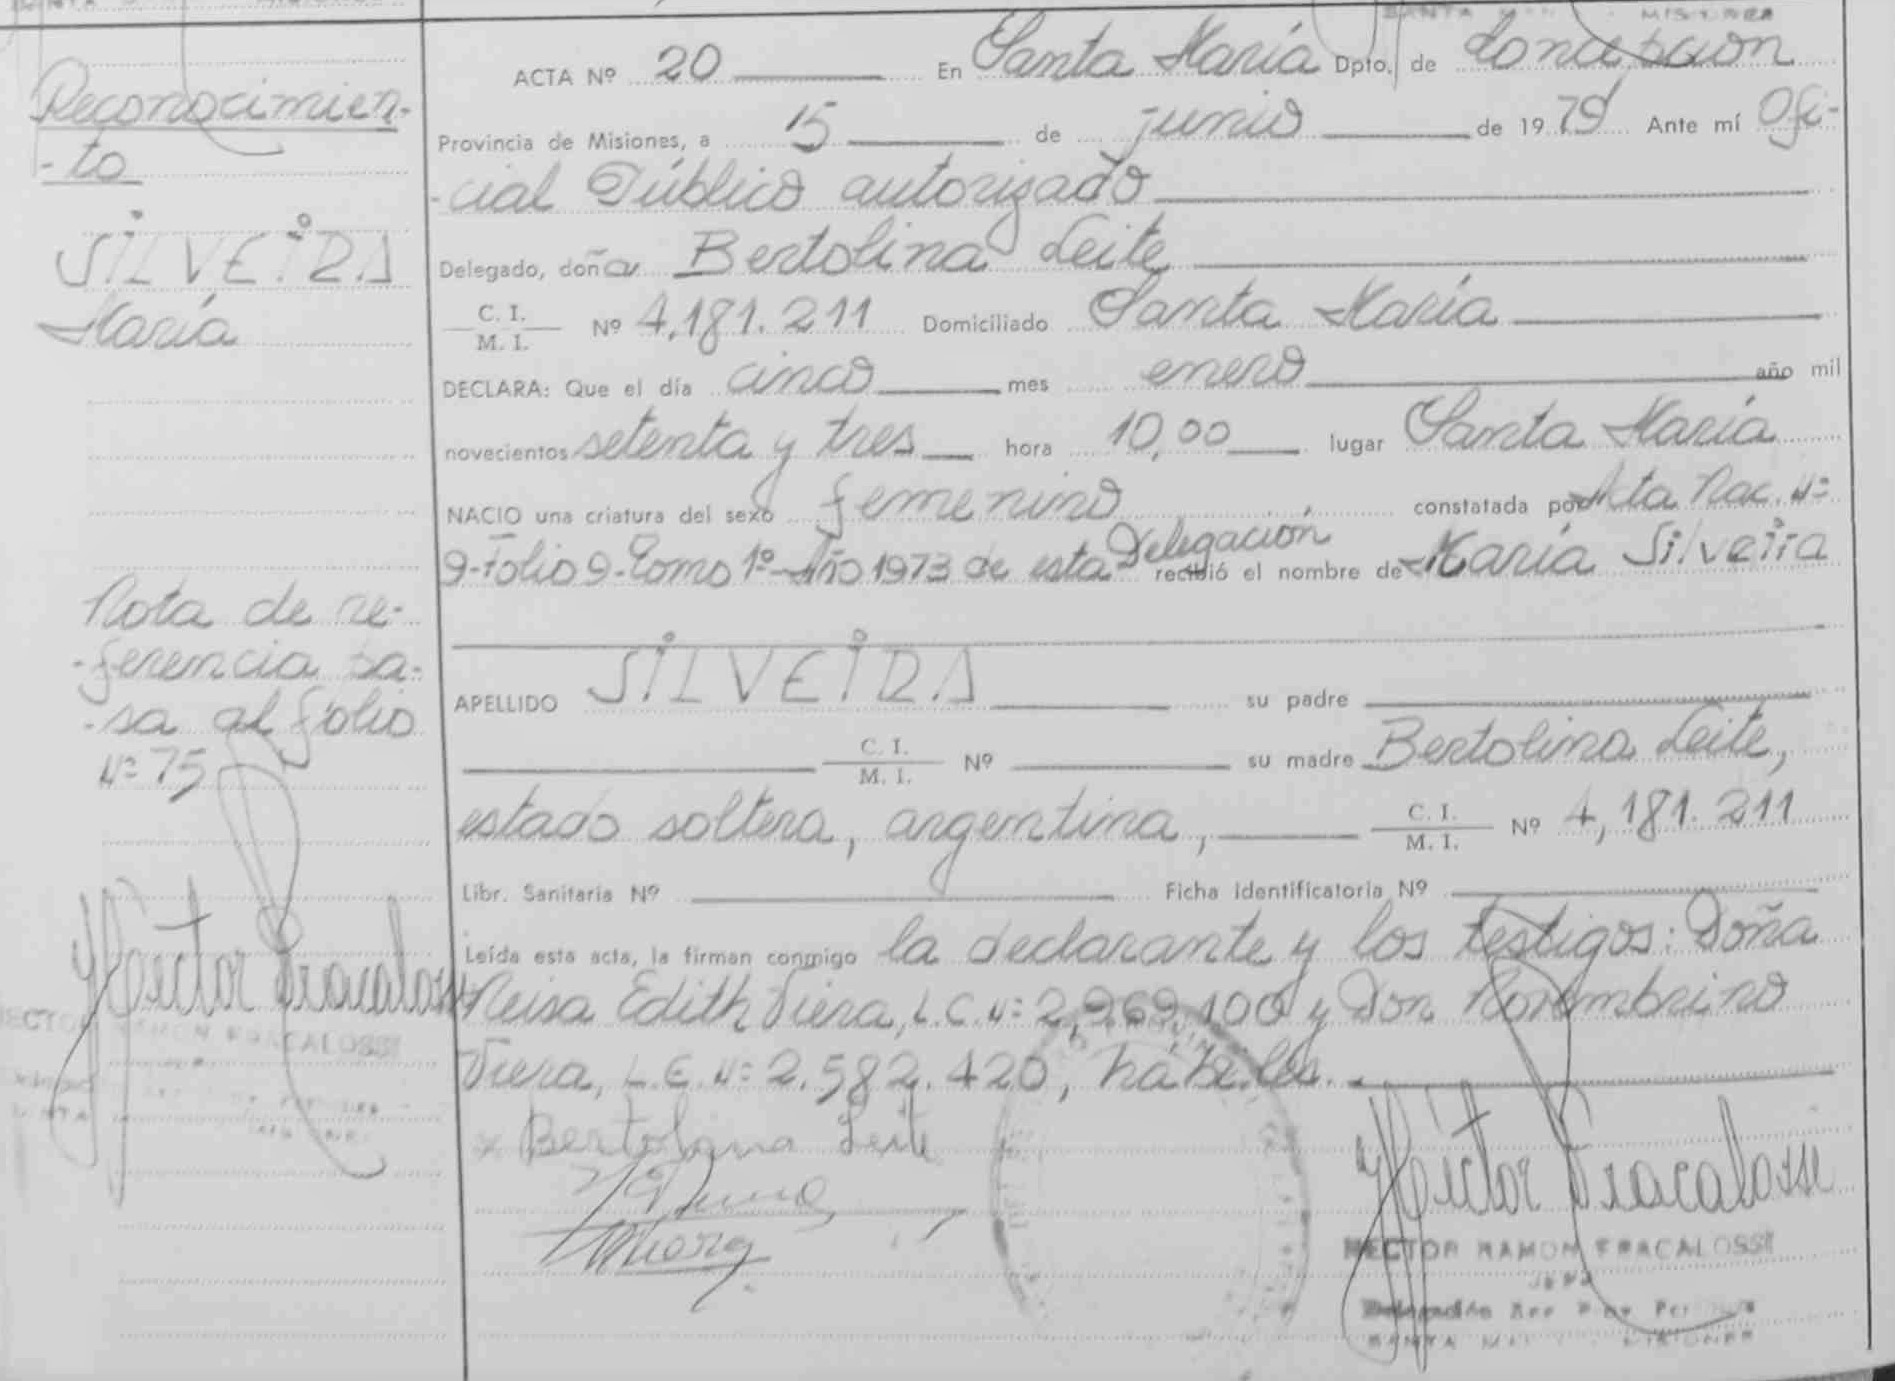 Reconocimien-
-to
SILVEIRA
María
Nota de re-
-ferencia pa-
-sa al folio
Nº 75
Hector Fracalossi
HECTOR RAMON FRACALOSSI
ACTA Nº 20 En Santa María Dpto. de Concepción
Provincia de Misiones, a 15 de junio de 1979 Ante mí Ofi-
-cial Público autorizado
Delegado, doña Bertolina Leite
C. I.
M. I. Nº 4.181.211 Domiciliado Santa María
DECLARA: Que el día cinco mes enero año mil
novecientos setenta y tres hora 10,00 lugar Santa María
NACIO una criatura del sexo femenino constatada por Acta Nac. Nº
9-Folio 9-Tomo 1º-Año 1973 de esta Delegación recibió el nombre de María Silveira
APELLIDO SILVEIRA su padre
C. I.
M. I. Nº su madre Bertolina Leite,
estado soltera, argentina, C. I.
M. I. Nº 4,181.211
Libr. Sanitaria Nº Ficha Identificatoria Nº
Leída esta acta, la firman conmigo la declarante y los testigos: Doña
Neisa Edith Viera, L.C. Nº 2,969,100 y Don Novembrino
Viera, L.E. Nº 2.582.420, hábiles.
x Bertolina Leite
Hector Fracalossi
HECTOR RAMON FRACALOSSI
JEFE
SANTA MARIA MISIONES